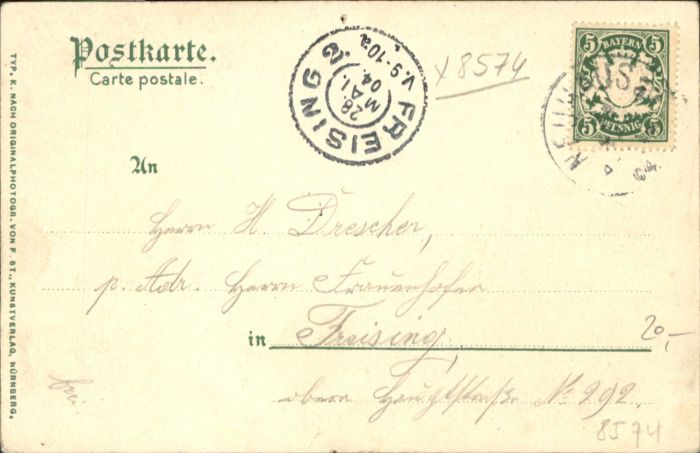 Postkarte.
Carte postale.
FREISING 2.
28.
MAI.
04.
V.9-10
x 8574
5 BAYERN 5
5 PFENNIG 5
An
Herrn H. Drescher,
p. Adr. Herrn Frauenhofer
in Freising,
20,-
obere Hauptstraße No 292.
8574
TYP. K. NACH ORIGINALPHOTOGR. VON F. ST., KUNSTVERLAG, NÜRNBERG.